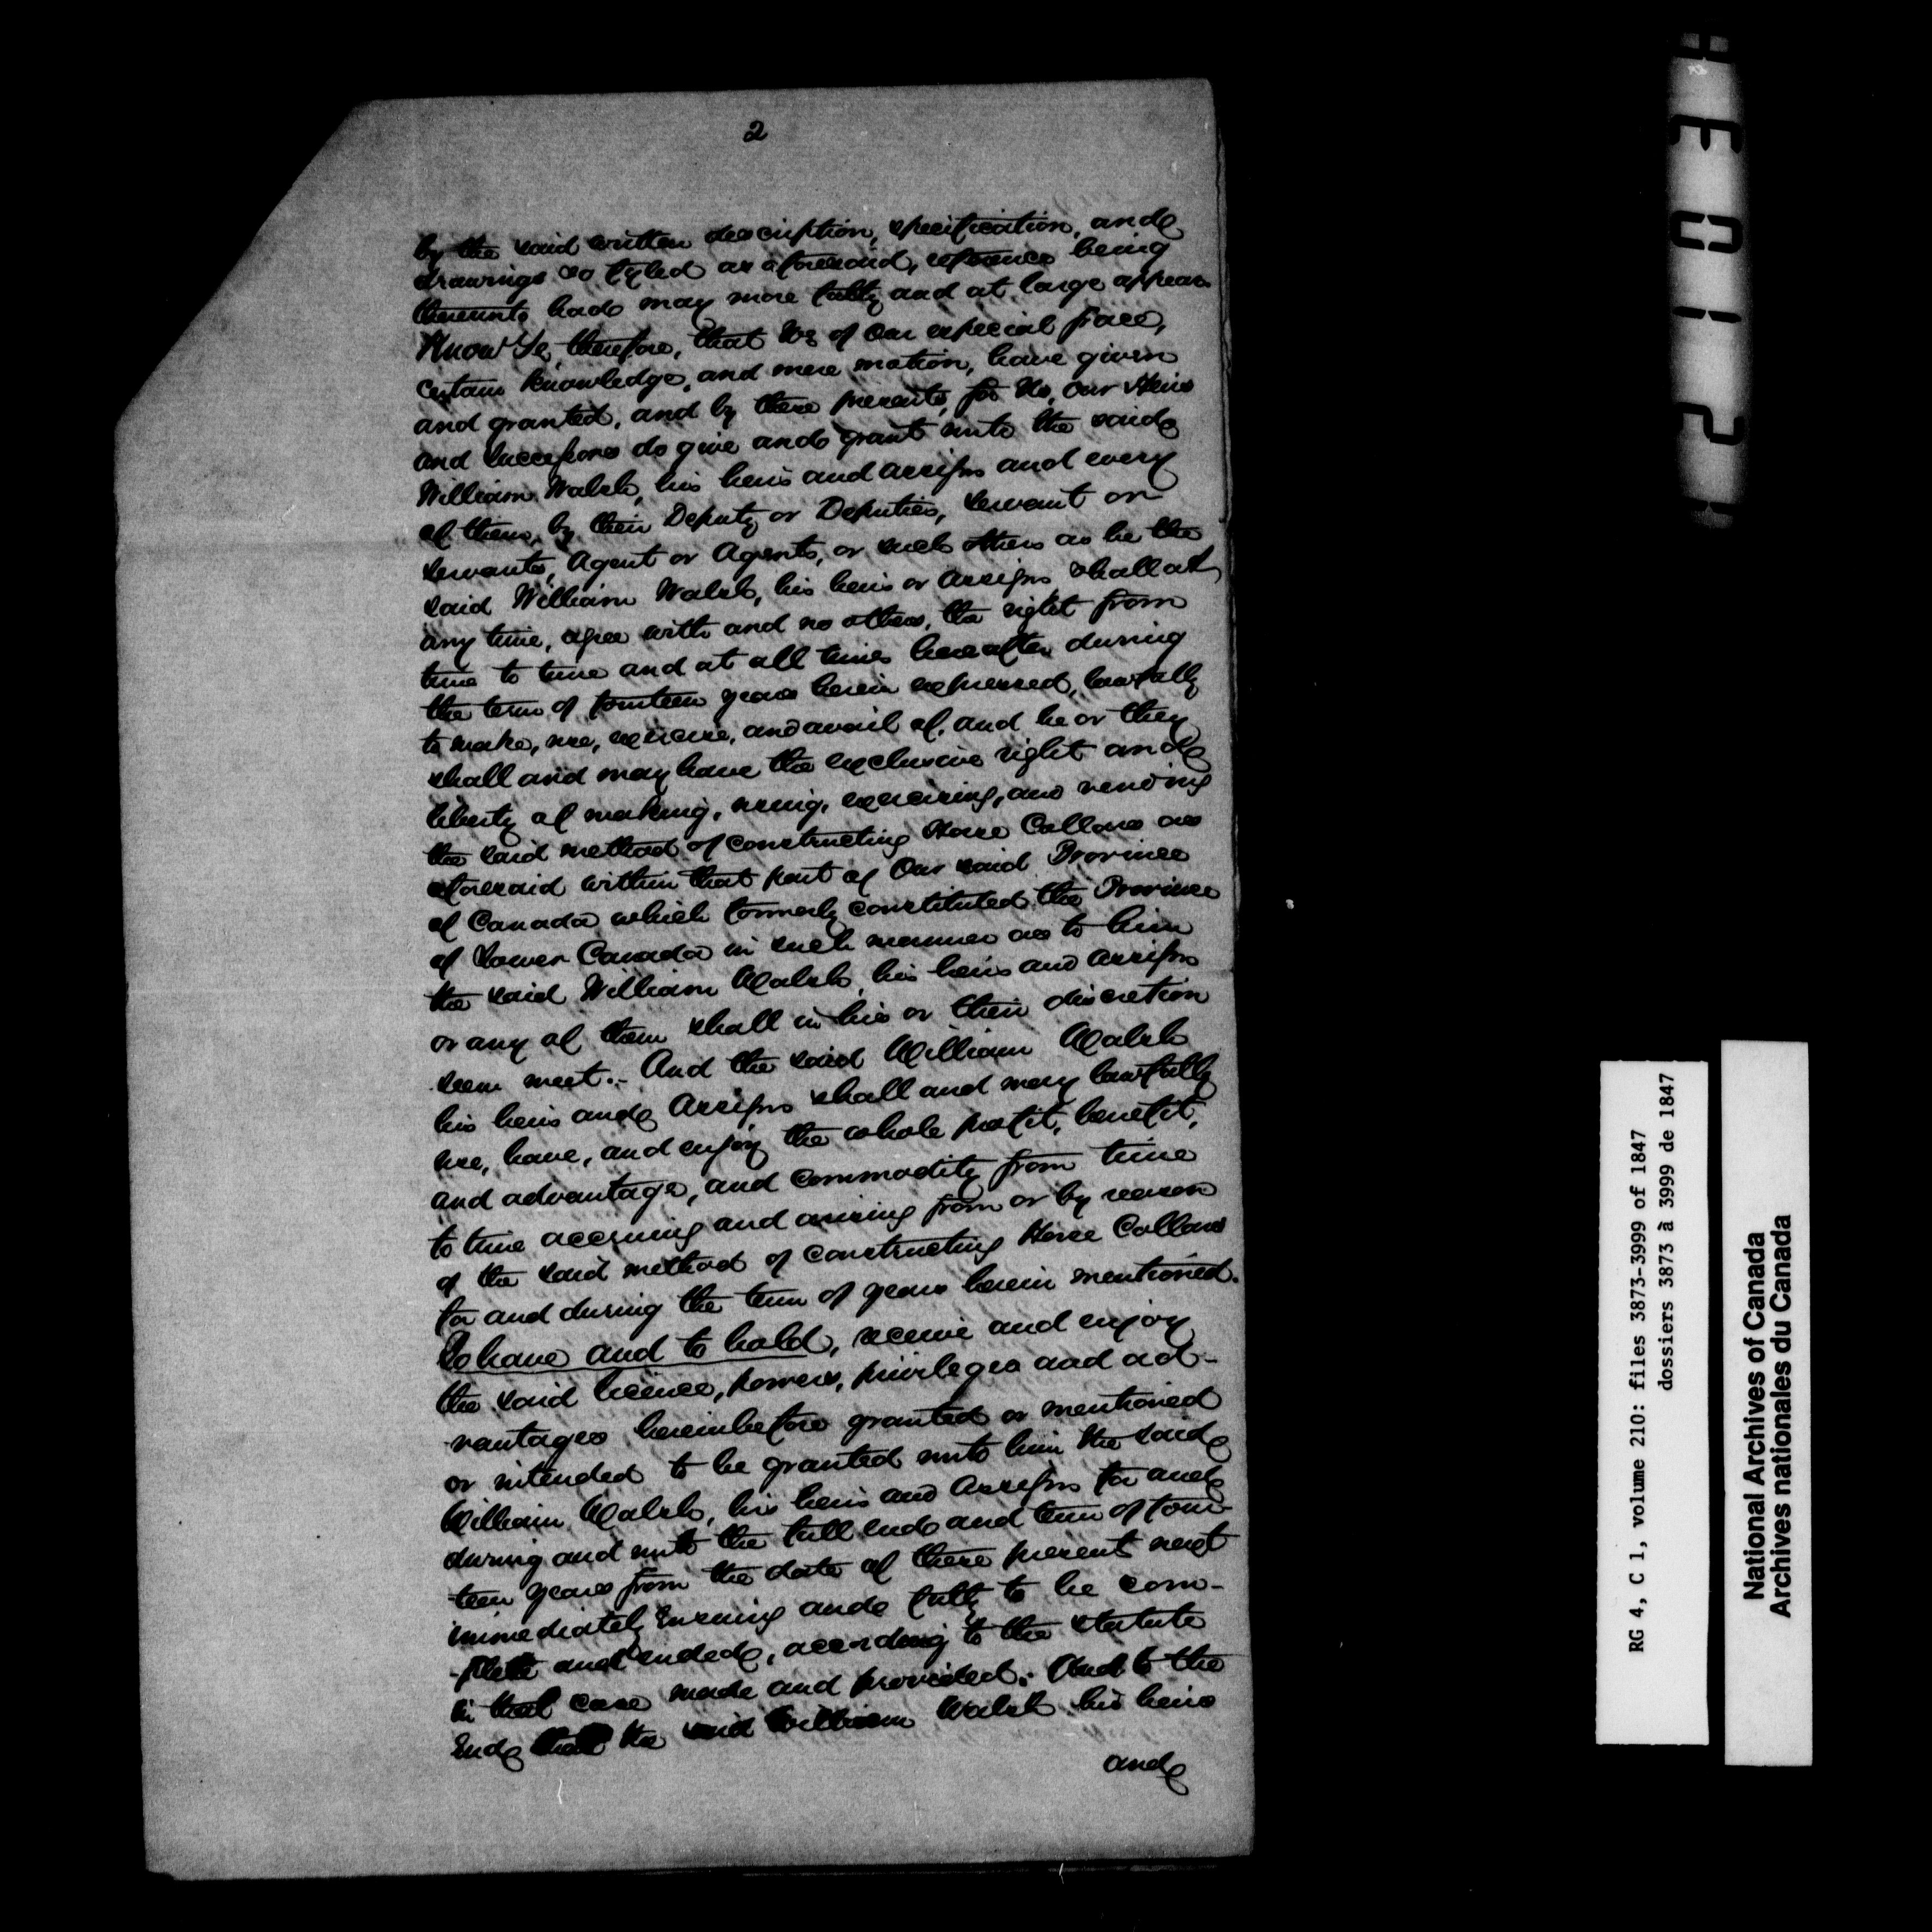 2
by the said written description, specification, and
drawings so fyled as aforesaid, reference being
thereunto had may more fully and at large appear.
Know Ye, therefore, that We of Our especial grace,
certain knowledge, and mere motion, have given
and granted, and by these presents, for Us, Our Heirs
and Successors do give and grant unto the said
William Walsh, his heirs and assigns and every
of them, by their Deputy or Deputies, servant or
servants, Agent or Agents, or such others as he the
said William Walsh, his heirs or assigns shall at
any time, agree with and no others, the right from
time to time and at all times hereafter during
the term of fourteen years herein expressed, lawfully
to make, use, exercise, and avail of, and he or they
shall and may have the exclusive right and
liberty of making, using, exercising, and vending
the said method of constructing Horse Collars as
aforesaid within that part of Our said Province
of Canada which formerly constituted the Province
of Lower Canada in such manner as to him
the said William Walsh, his heirs and assigns
or any of them shall in his or their discretion
seem meet.- And the said William Walsh
his heirs and Assigns shall and may lawfully
use, have, and enjoy the whole profit, benefit,
and advantage, and commodity from time
to time accruing and arising from or by reason
of the said method of constructing Horse Collars
for and during the term of years herein mentioned.
To have and to hold, receive and enjoy
the said licence, powers, privileges and ad-
-vantages hereinbefore granted or mentioned
or intended to be granted unto him the said
William Walsh, his heirs and Assigns for and
during and unto the full end and term of four-
-teen years from the date of these present next
immediately Ensuing and fully to be com-
-plete and ended, according to the statute
in that case made and provided. And to the
End that the said William Walsh his heirs
and
E012
RG 4, C 1, volume 210: files 3873-3999 of 1847
dossiers 3873 à 3999 de 1847
National Archives of Canada
Archives nationales du Canada